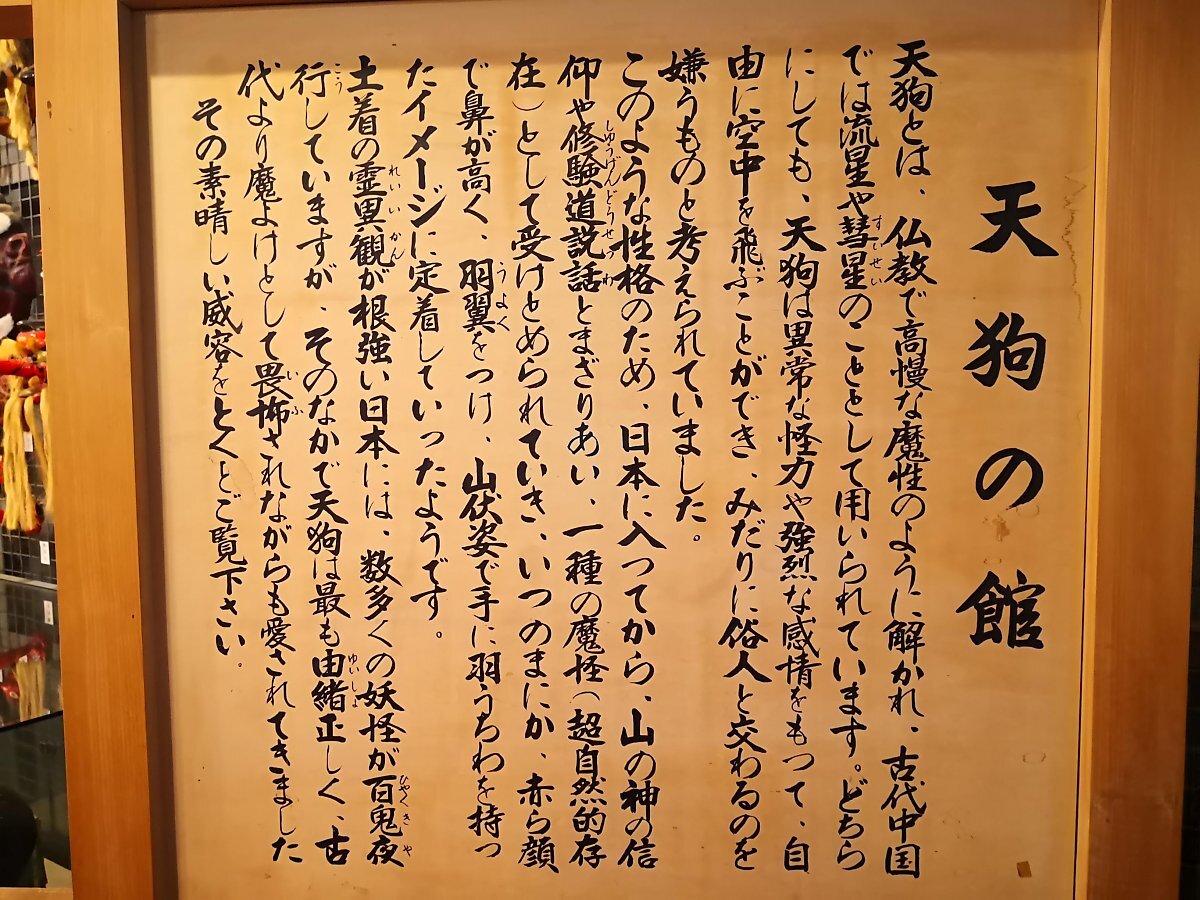 天狗の館
天狗とは、仏教で高慢な魔性のように解かれ、古代中国
では流星や彗星のこととして用いられています。どちら
にしても、天狗は異常な怪力や強烈な感情をもつて、自
由に空中を飛ぶことができ、みだりに俗人と交わるのを
嫌うものと考えられていました。
このような性格のため、日本に入つてから、山の神の信
仰や修験道説話とまざりあい、一種の魔怪(超自然的存
在)として受けとめられていき、いつのまにか、赤ら顔
で鼻が高く、羽翼をつけ、山伏姿で手に羽うちわを持つ
たイメージに定着していったようです。
土着の霊異観が根強い日本には、数多くの妖怪が百鬼夜
行していますが、そのなかで天狗は最も由緒正しく、古
代より魔よけとして畏怖されながらも愛されてきました
その素晴しい威容をとくとご覧下さい。